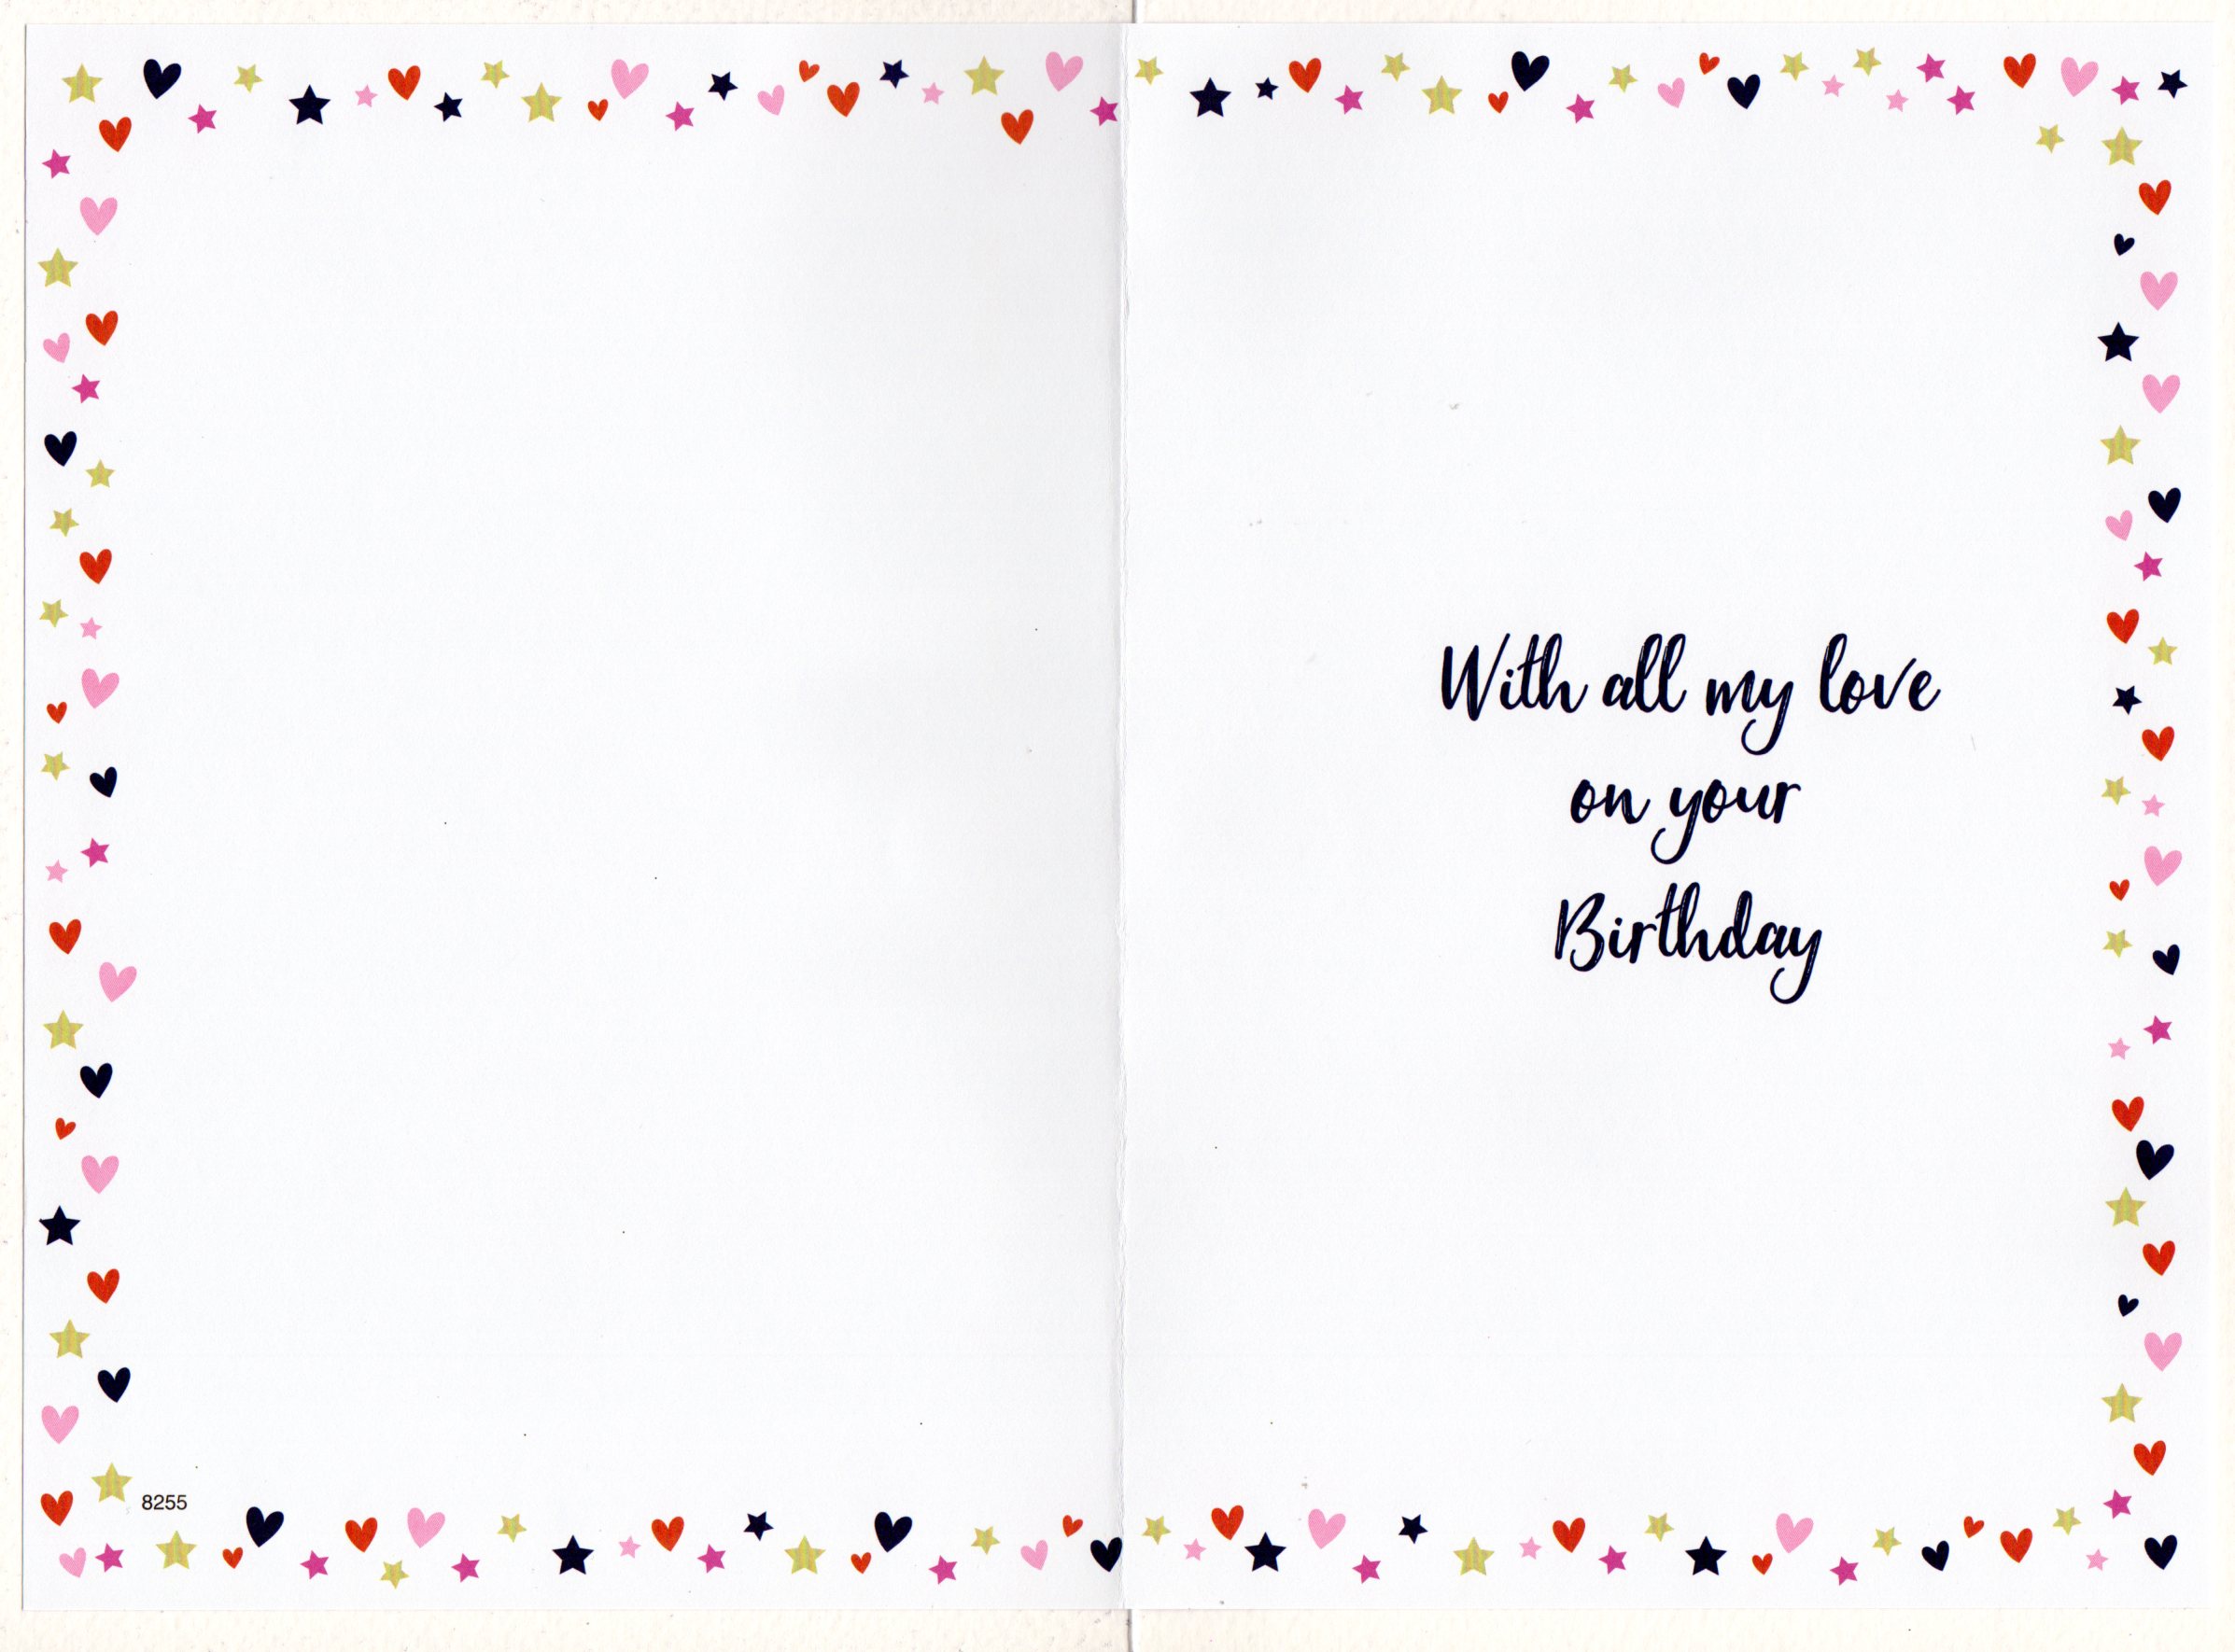 8255
With all my love
on your
Birthday